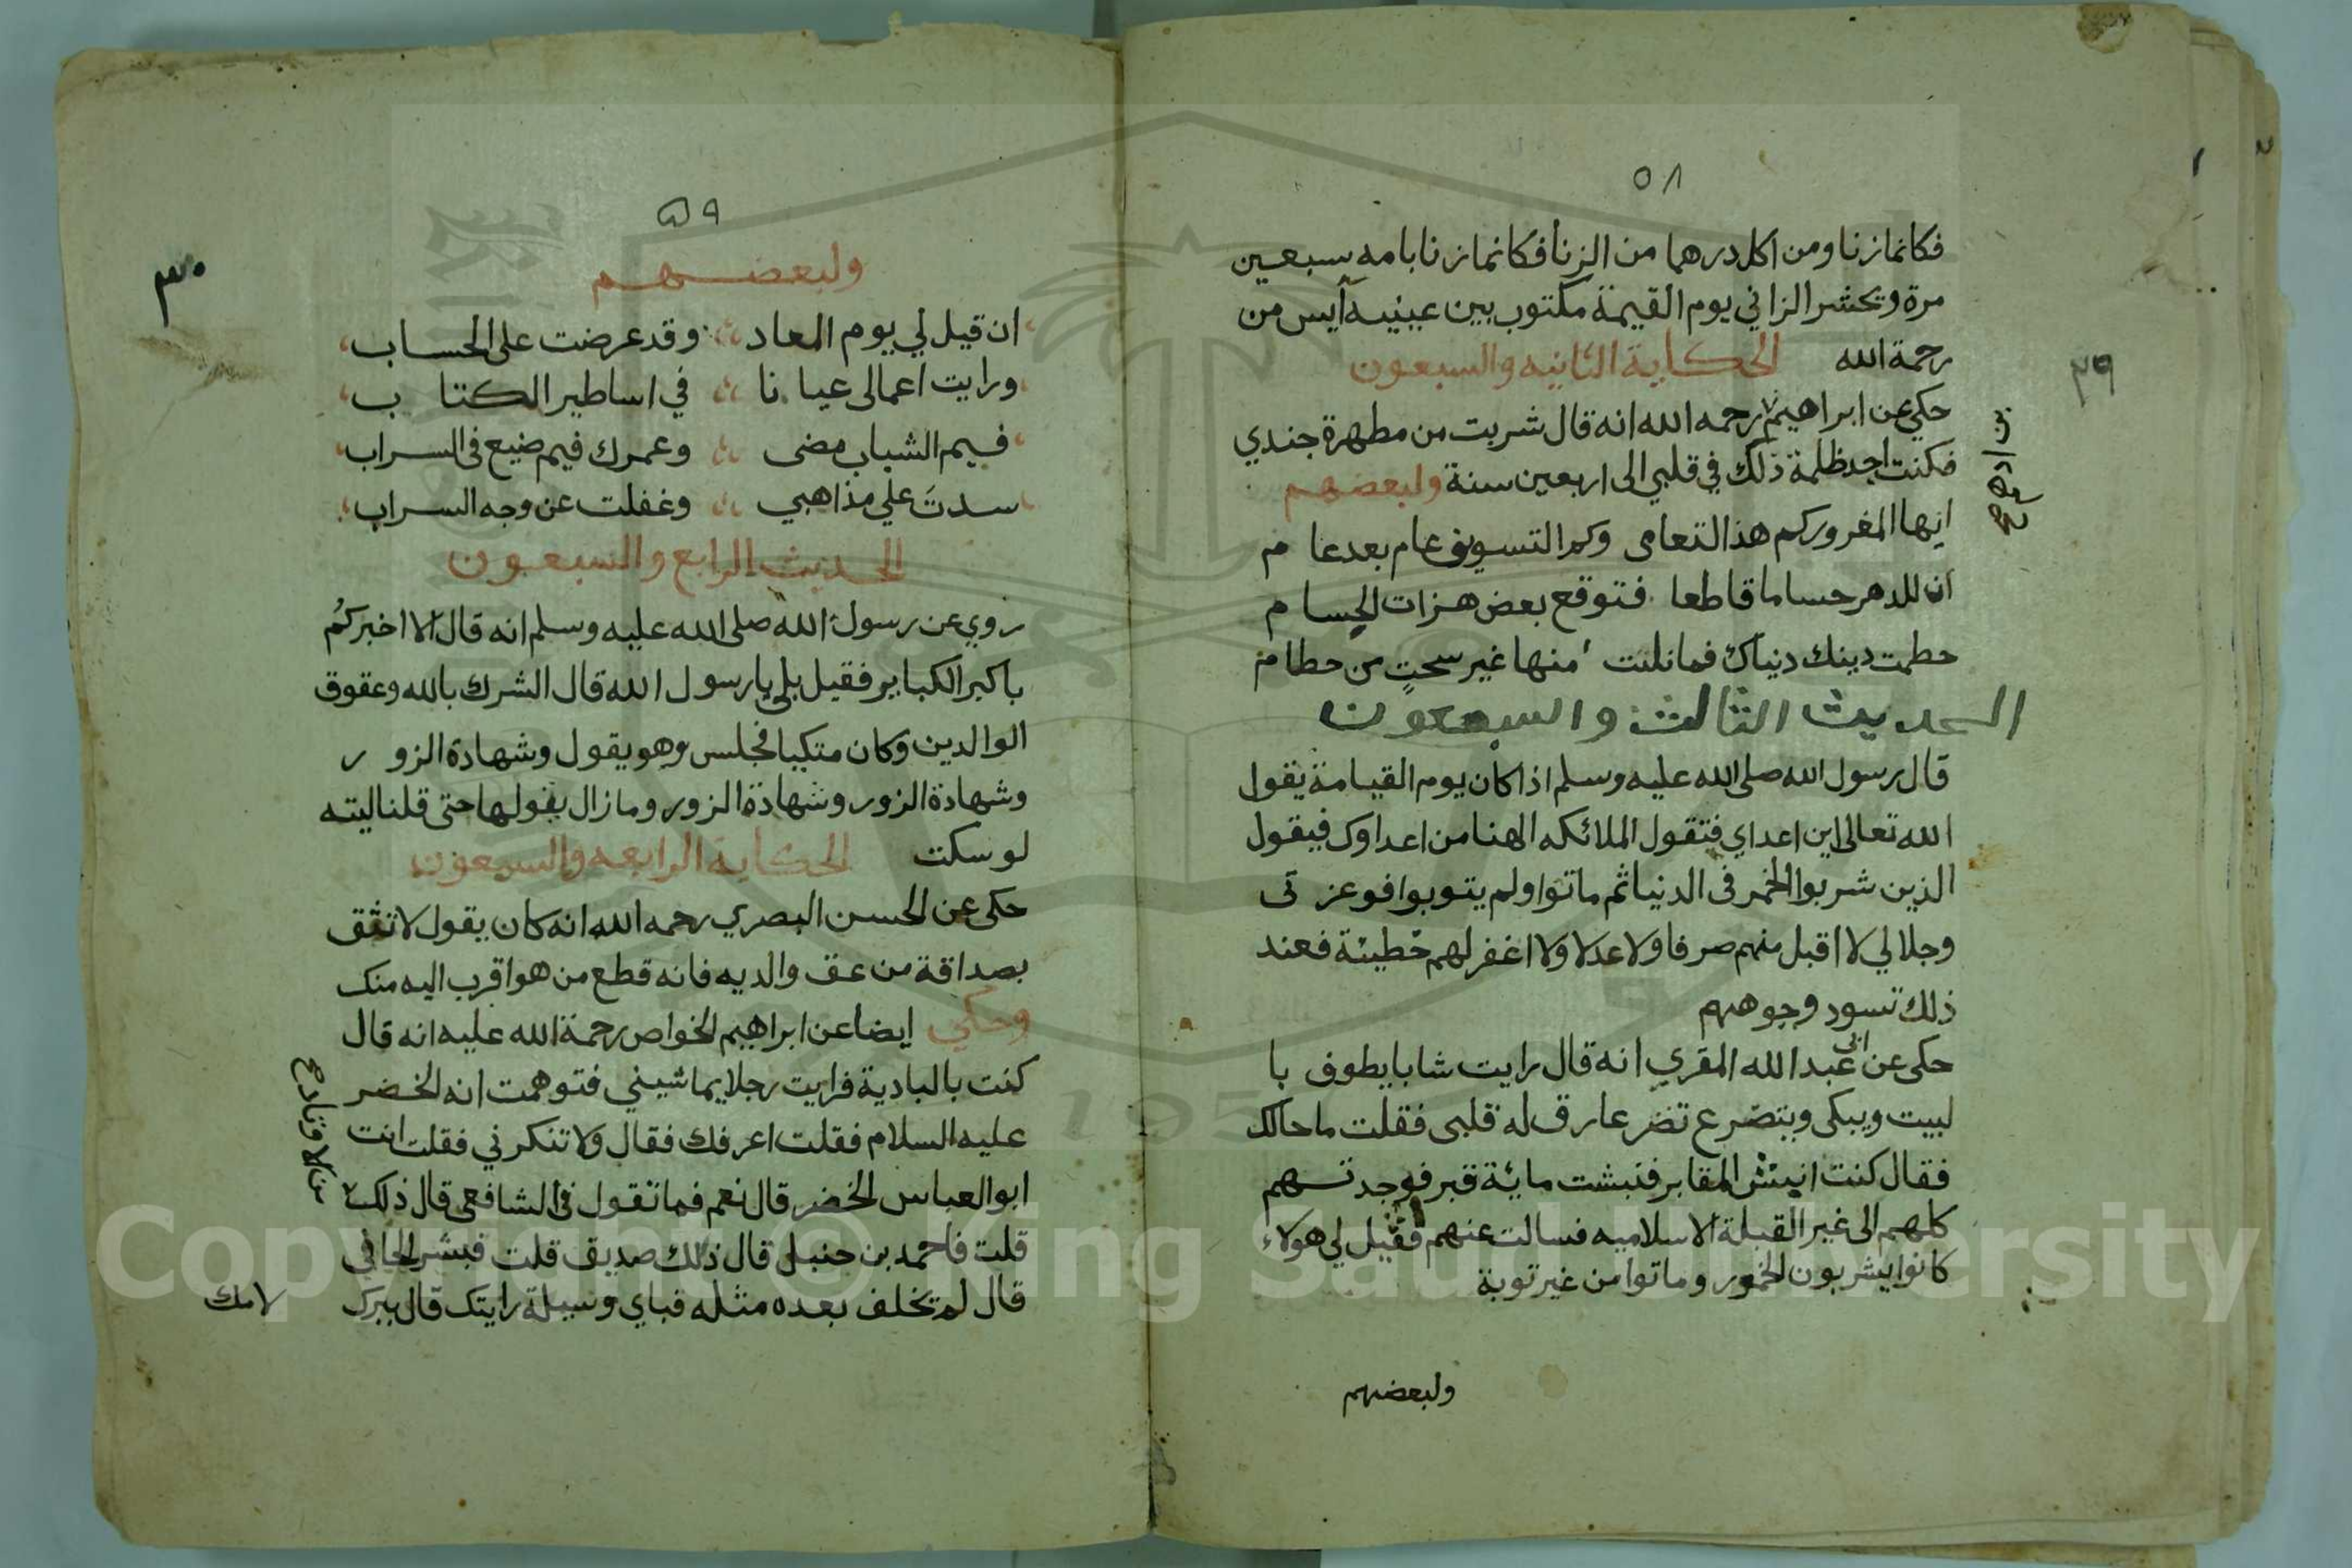 ٥٨
فكانما زنا ومن اكل درهما من الزنا فكانما زنا بامه سبعين
مرة ويحشر الزاني يوم القيمة مكتوب بين عينيه آيس من
رحمة الله الحكاية الثانيه والسبعون
٢٩
حكي عن ابراهيم رحمه الله انه قال شربت من مطهرة جندي
بن ادهم صح
فكنت اجد ظلمة ذلك في قلبي الى اربعين سنة ولبعضهم
ايها المغرور كم هذا التعامى وكم التسويف عام بعد عام
ان للدهر حساما قاطعا فتوقع بعض هزات الحسام
حطمت دينك دنياك فما نلنت منها غير سحتٍ من حطام
الحديث الثالث والسبعون
قال رسول الله صلى الله عليه وسلم اذا كان يوم القيامة يقول
الله تعالى اين اعداي فتقول الملائكه الهنا من اعداوك فيقول
الذين شربوا الخمر فى الدنيا ثم ماتوا ولم يتوبوا فوعزتى
وجلالي لا اقبل منهم صرفا ولا عدلا ولا اغفر لهم خطيئة فعند
ذلك تسود وجوههم
حكى عن ابى عبد الله المقري انه قال رايت شابا يطوف با
لبيت ويبكى ويتضرع تضرعا رق له قلبى فقلت ما حالك
فقال كنت انبش المقابر فنبشت ماية قبر فوجدتهم
كلهم الى غير القبلة الاسلاميه فسالت عنهم فقيل لي هولاء
كانوا يشربون الخمور وماتوا من غير توبة
ولبعضهم
٥٩
٣٠
ولبعضهم
ان قيل لي يوم المعاد وقد عرضت على الحساب
ورايت اعمالى عيانا في اساطير الكتاب
فيم الشباب مضى وعمرك فيم ضيع فى السراب
سدتَ علي مذاهبي وغفلت عن وجه السراب
الحديث الرابع والسبعون
روي عن رسول الله صلى الله عليه وسلم انه قال الا اخبركُم
باكبر الكباير فقيل بلى يا رسول الله قال الشرك بالله وعقوق
الوالدين وكان متكيا فجلس وهو يقول وشهادة الزور
وشهادة الزور وشهادة الزور وما زال يقولها حتى قلنا ليته
لو سكت الحكاية الرابعه والسبعون
حكى عن الحسن البصري رحمه الله انه كان يقول لا تثق
بصداقة من عق والديه فانه قطع من هو اقرب اليه منك
وحكي ايضا عن ابراهيم الخواص رحمة الله عليه انه قال
كنت بالبادية فرايت رجلا يماشيني فتوهمت انه الخضر
عليه السلام فقلت اعرفك فقال ولا تنكرني فقلت انت
ابو العباس الخضر قال نعم فما تقول فى الشافعى قال ذلك
قلت فاحمد بن حنبل قال ذلك صديق قلت فبشر الحافى
قال لم يخلف بعده مثله فباي وسيلة رايتك قال ببرك
لامك
Copyright © King Saud University
1957